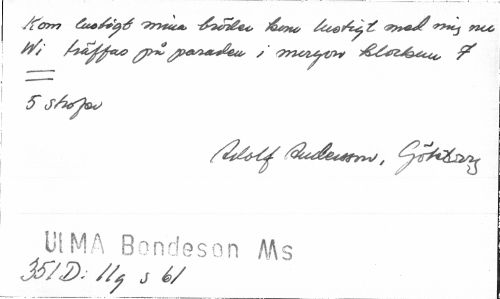 Kom lustigt mina bröder kom lustigt med mig nu
Wi träffas på paraden i morgon klockan 7
5 strofer
Adolf Andersson, Göteborg
ULMA Bondeson Ms
351 D: 11q s 61